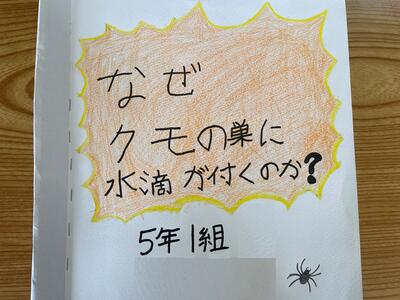 なぜ
クモの巣に
水滴が付くのか?
5年1組